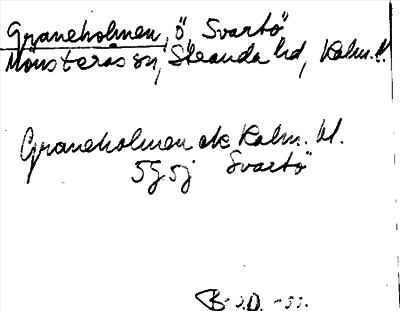 Graneholmen, ö, Svartö
Mönsterås sn, Stranda hd, Kalm. l.
Graneholmen ek Kalm. bl.
5G5j Svartö